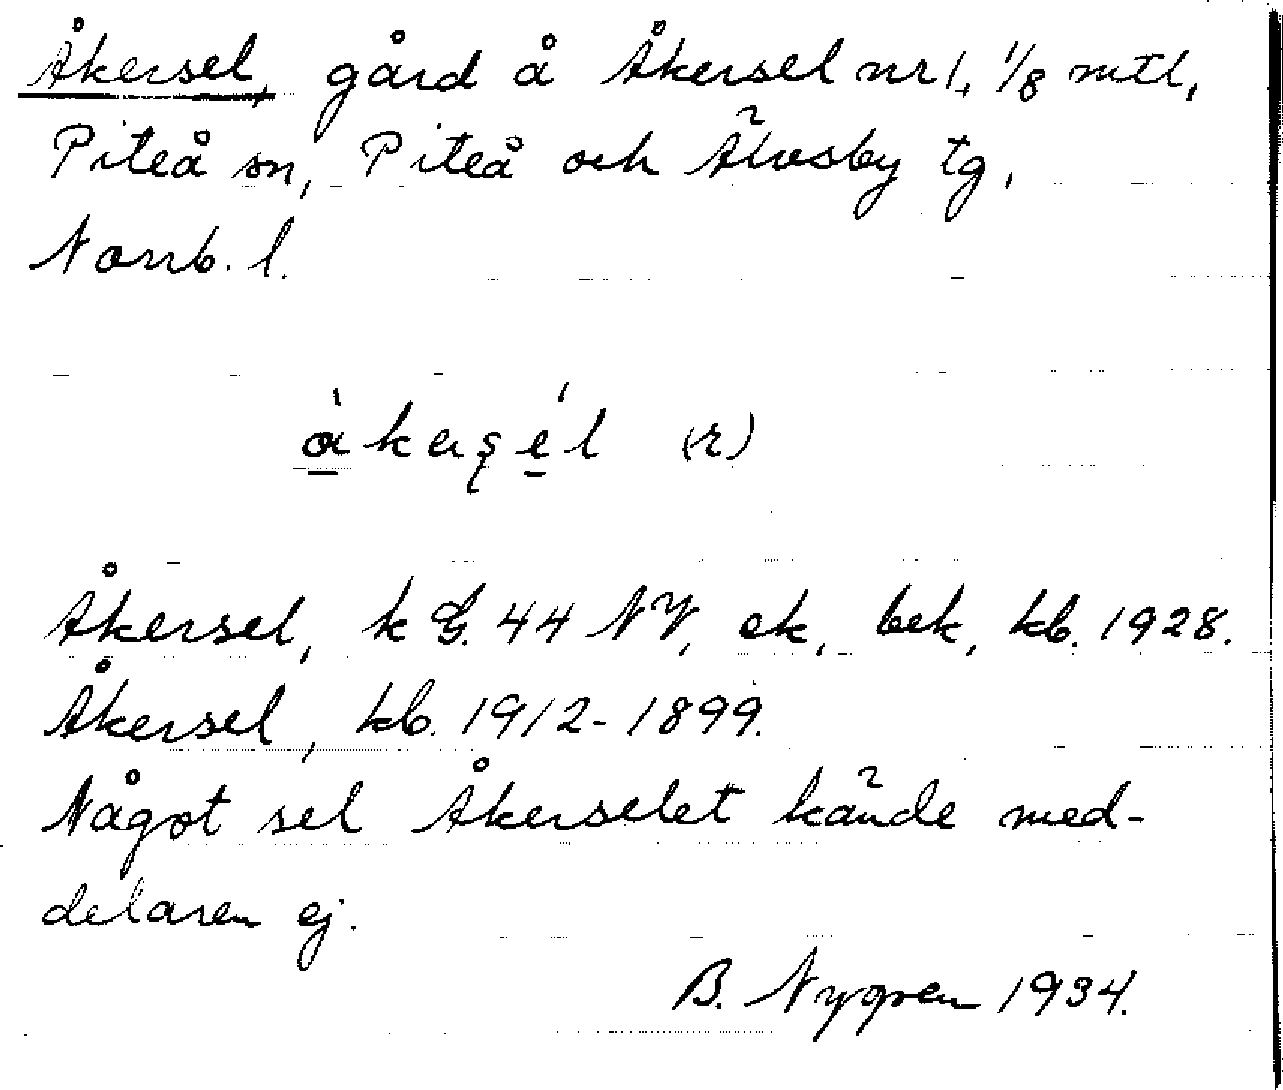 Åkersel, gård å Åkersel nr 1, 1/8 mtl,
Piteå sn, Piteå och Älvsby tg,
Norrb. l.
(r)
Åkersel, k G. 44 NV, ek, bek, kb. 1928.
Åkersel, kb. 1912-1899.
Något sel Åkerselet kände med-
delaren ej.
B. Nygren 1934.